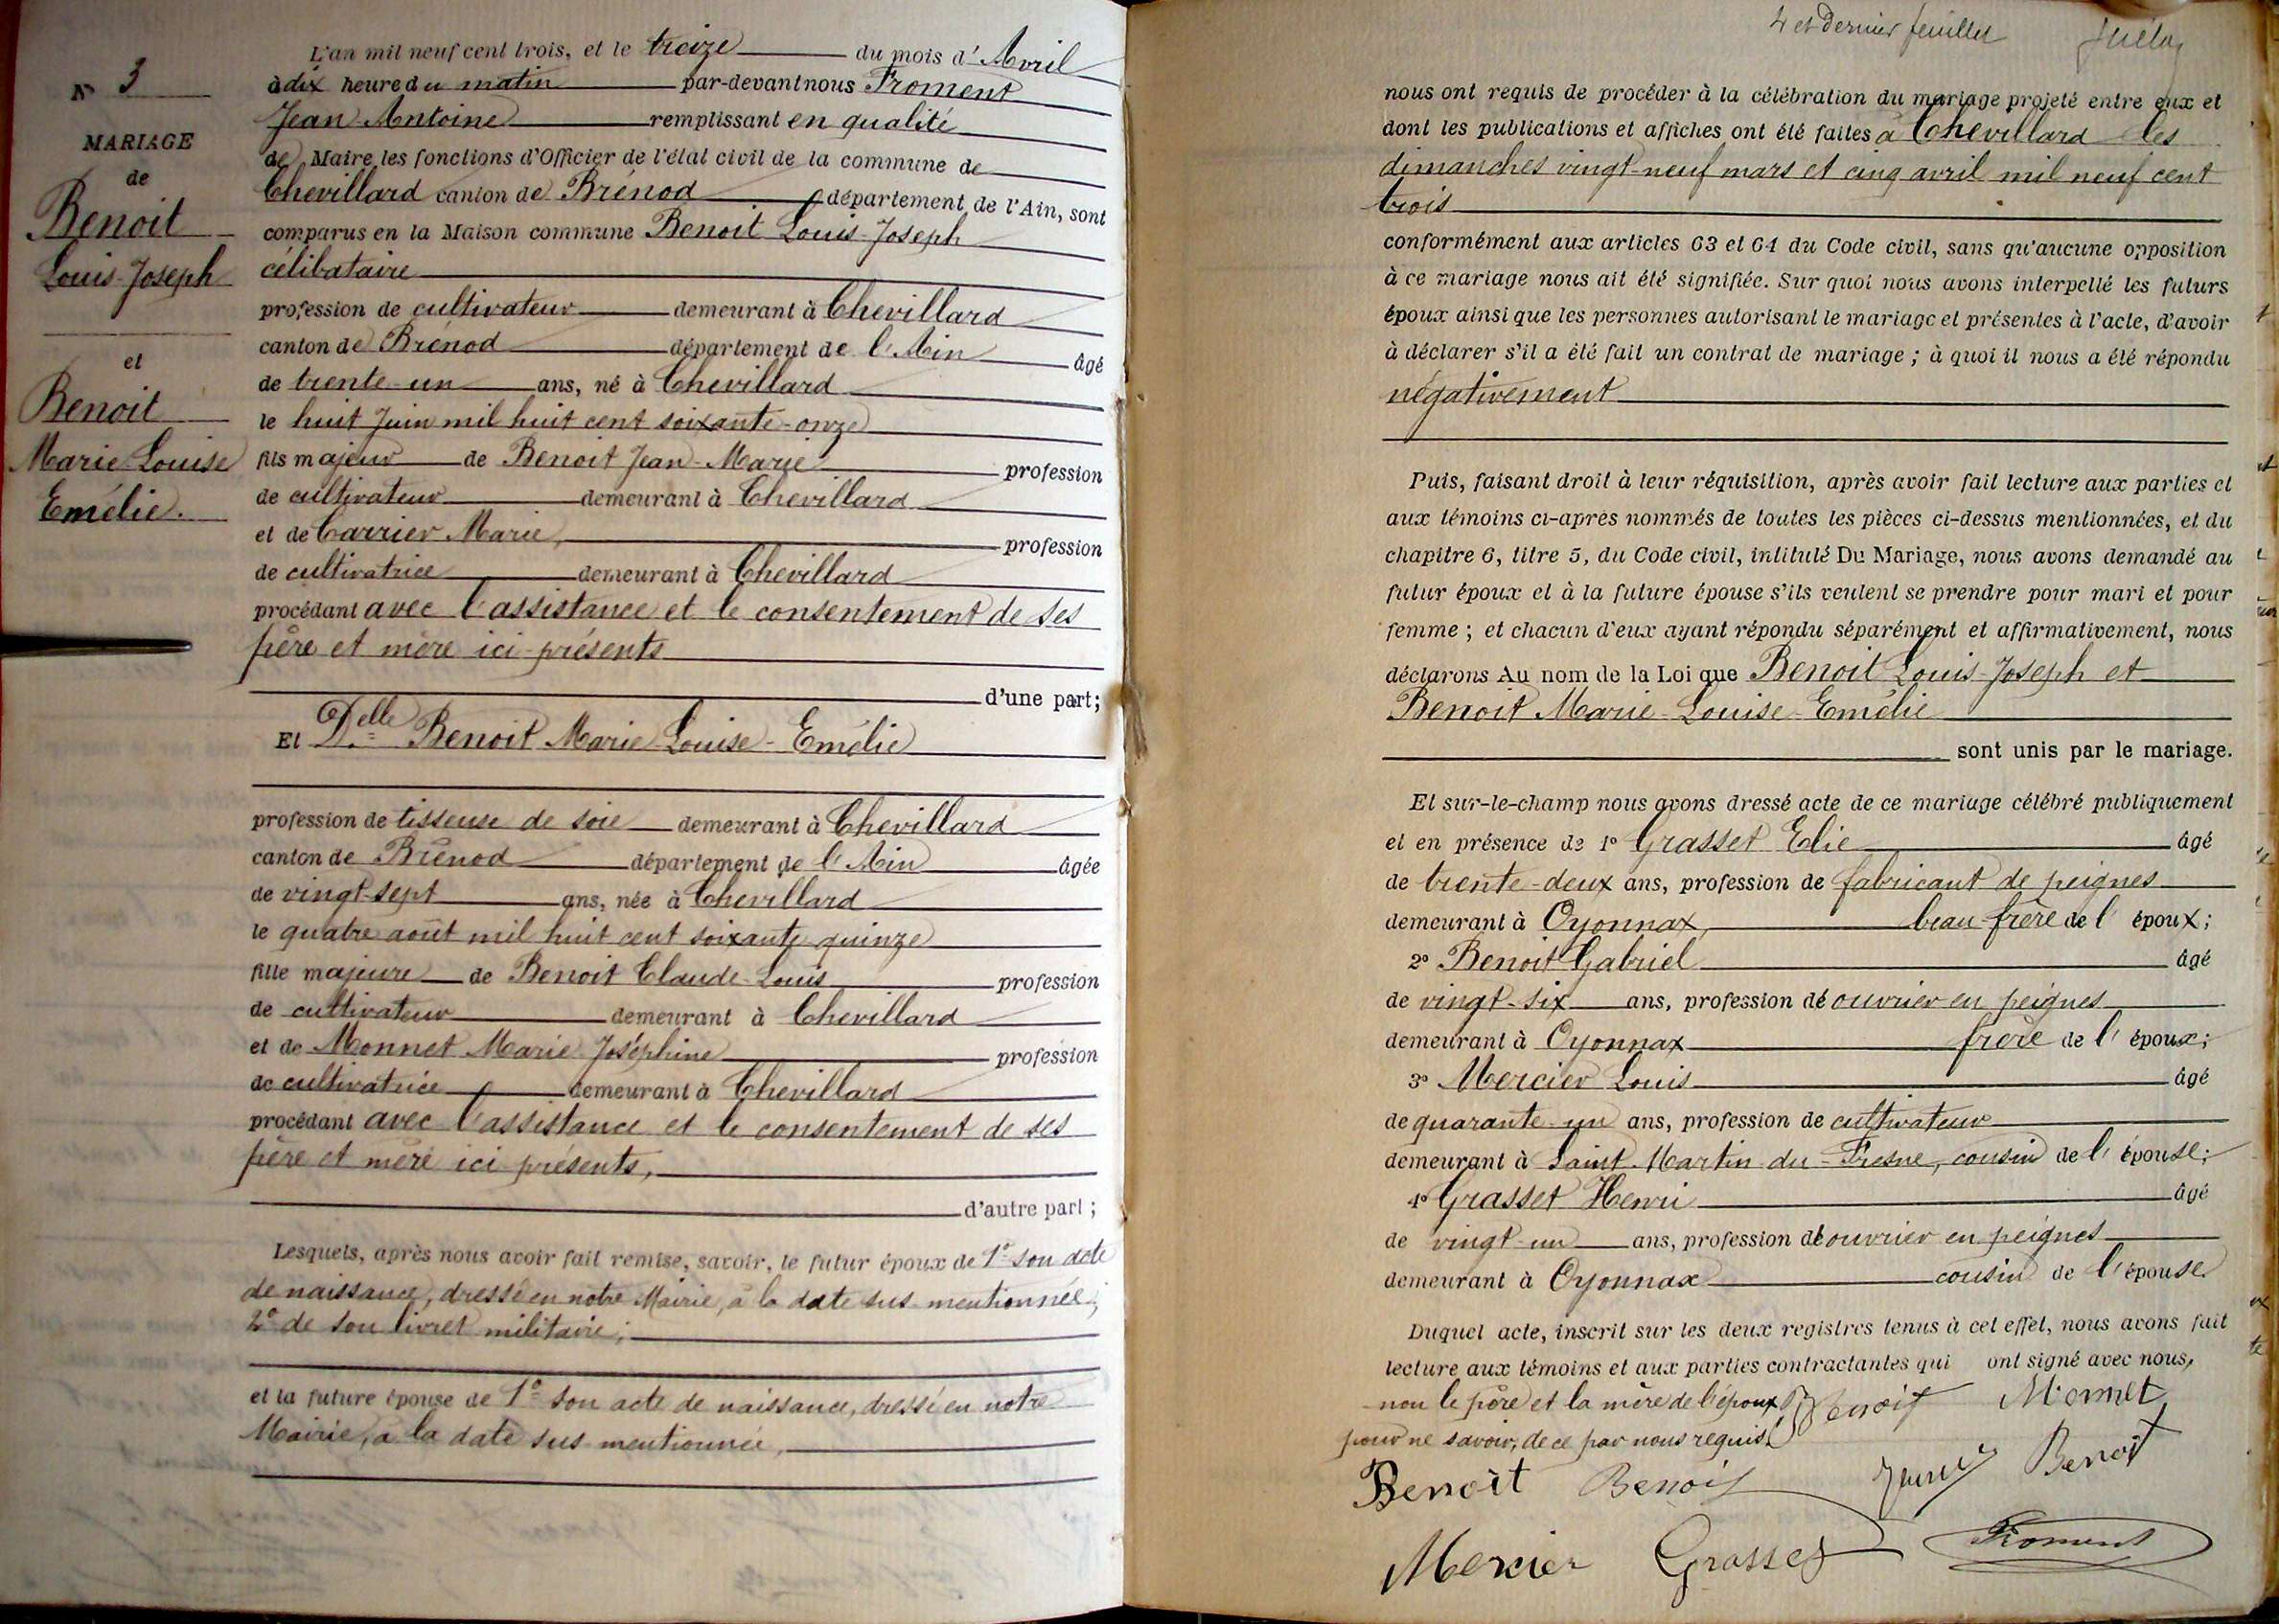 N° 3
MARIAGE
de
Benoit
Louis-Joseph
et
Benoit
Marie Louise
Emélie.
L'an mil neuf cent trois, et le treize du mois d'Avril
à dix heure du matin par-devant nous Froment
Jean Antoine remplissant en qualité
de Maire les fonctions d'Officier de l'état civil de la commune de
Chevillard canton de Brénod département de l'Ain, sont
comparus en la Maison commune Benoit Louis-Joseph
célibataire
profession de cultivateur demeurant à Chevillard
canton de Brénod département de l'Ain âgé
de trente-un ans, né à Chevillard
le huit Juin mil huit cent soixante-onze
fils majeur de Benoit Jean-Marie profession
de cultivateur demeurant à Chevillard
et de Carrier Marie, profession
de cultivatrice demeurant à Chevillard
procédant avec l'assistance et le consentement de ses
père et mère ici présents
d'une part;
Et Delle Benoit Marie-Louise-Emélie
profession de tisseuse de soie demeurant à Chevillard
canton de Brénod département de l'Ain âgée
de vingt-sept ans, née à Chevillard
le quatre août mil huit cent soixante quinze
fille majeure de Benoit Claude-Louis profession
de cultivateur demeurant à Chevillard
et de Monnet Marie Joséphine profession
de cultivatrice demeurant à Chevillard
procédant avec l'assistance et le consentement de ses
père et mère ici présents,
d'autre part;
Lesquels, après nous avoir fait remise, savoir, le futur époux de 1° son acte
de naissance, dressé en notre Mairie, à la date sus mentionnée;
2° de son livret militaire;
et la future épouse de 1° son acte de naissance, dressé en notre
Mairie, à la date sus mentionnée,
4 et Dernier feuillet
nous ont requis de procéder à la célébration du mariage projeté entre eux et
dont les publications et affiches ont été faites à Chevillard les
dimanches vingt-neuf mars et cinq avril mil neuf cent
trois
conformément aux articles 63 et 64 du Code civil, sans qu'aucune opposition
à ce mariage nous ait été signifiée. Sur quoi nous avons interpellé les futurs
époux ainsi que les personnes autorisant le mariage et présentes à l'acte, d'avoir
à déclarer s'il a été fait un contrat de mariage; à quoi il nous a été répondu
négativement
Puis, faisant droit à leur réquisition, après avoir fait lecture aux parties et
aux témoins ci-après nommés de toutes les pièces ci-dessus mentionnées, et du
chapitre 6, titre 5, du Code civil, intitulé Du Mariage, nous avons demandé au
futur époux et à la future épouse s'ils veulent se prendre pour mari et pour
femme; et chacun d'eux ayant répondu séparément et affirmativement, nous
déclarons Au nom de la Loi que Benoit Louis-Joseph et
Benoit Marie-Louise-Emélie
sont unis par le mariage.
Et sur-le-champ nous avons dressé acte de ce mariage célébré publiquement
et en présence de 1° Grasset Elie âgé
de trente-deux ans, profession de fabricant de peignes
demeurant à Oyonnax, beau-frère de l'époux;
2° Benoit Gabriel âgé
de vingt-six ans, profession de ouvrier en peignes
demeurant à Oyonnax frère de l'époux;
3° Mercier Louis âgé
de quarante-un ans, profession de cultivateur
demeurant à Saint Martin-du-Fresne, cousin de l'épouse;
4° Grasset Henri âgé
de vingt-un ans, profession de ouvrier en peignes
demeurant à Oyonnax cousin de l'épouse.
Duquel acte, inscrit sur les deux registres tenus à cet effet, nous avons fait
lecture aux témoins et aux parties contractantes qui ont signé avec nous,
non le père et la mère de l'époux Benoit Monnet
pour ne savoir, de ce par nous requis
Benoit Benoit Benoit
Mercier Grasset Froment